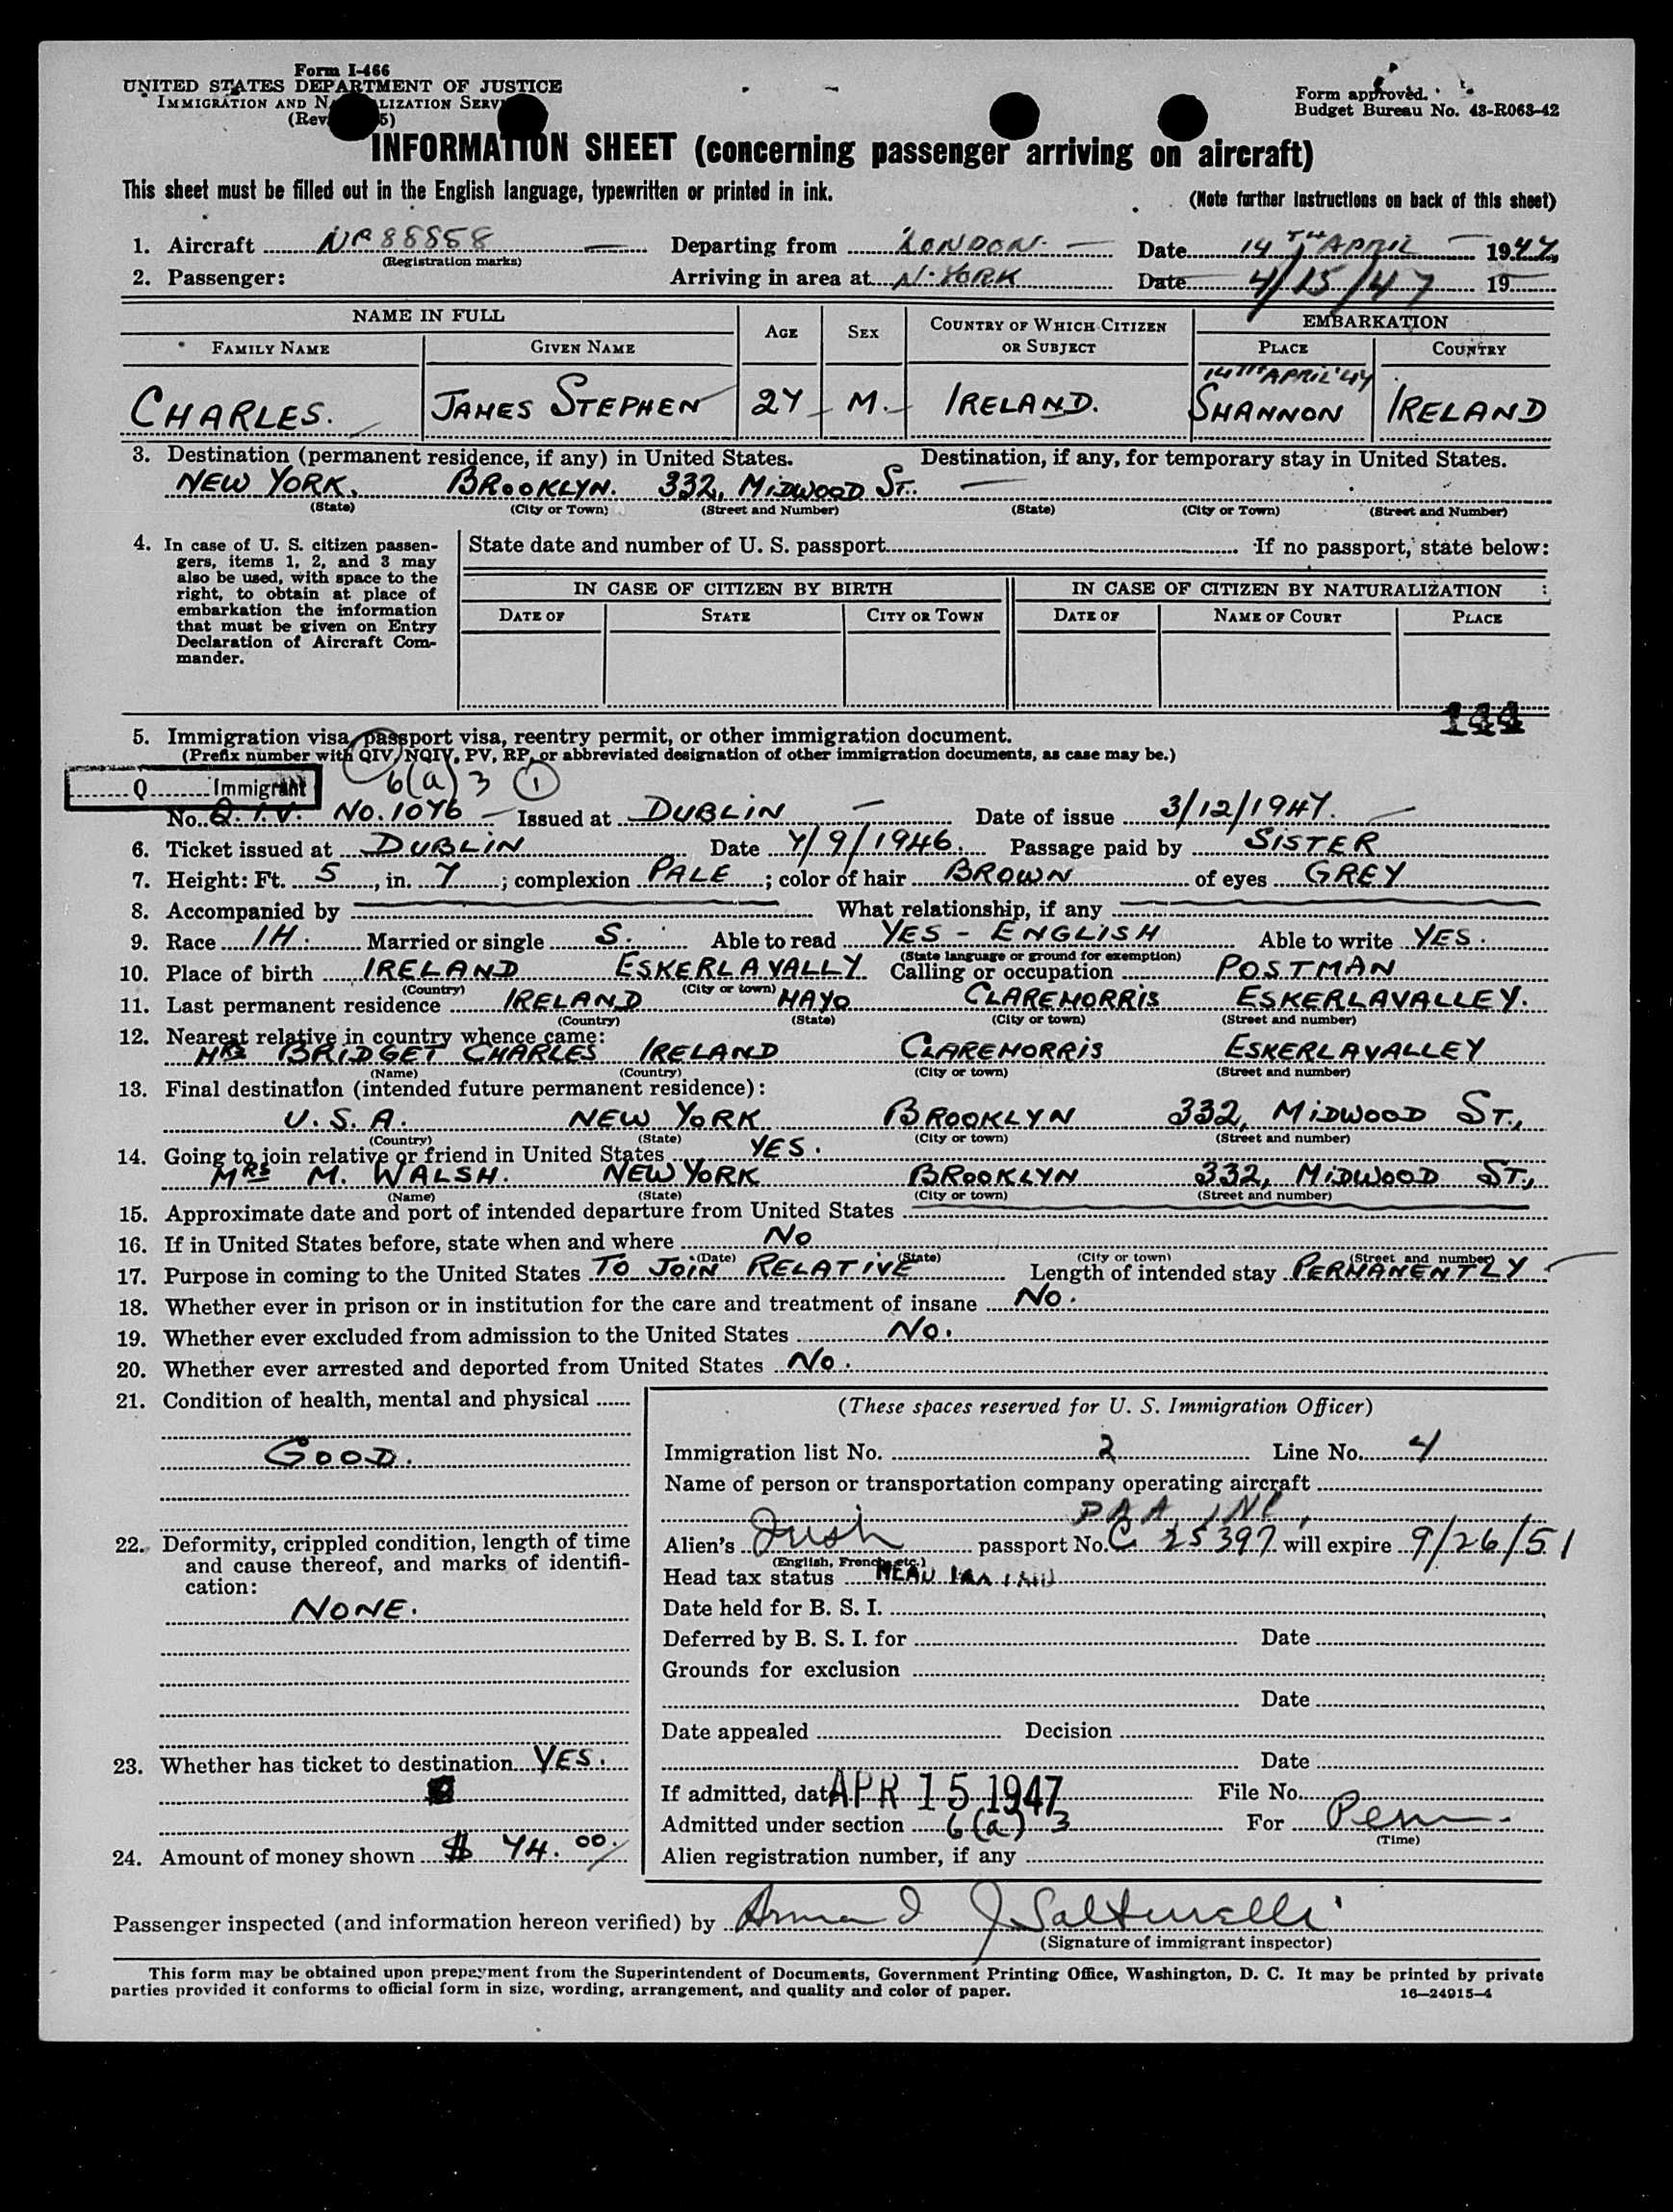 Form I-466
UNITED STATES DEPARTMENT OF JUSTICE
IMMIGRATION AND NATURALIZATION SERVICE
(Rev. 5)
Form approved.
Budget Bureau No. 43-R063-42
INFORMATION SHEET (concerning passenger arriving on aircraft)
This sheet must be filled out in the English language, typewritten or printed in ink.
(Note further instructions on back of this sheet)
1. Aircraft 88858 Departing from LONDON. Date 14TH APRIL 1947
(Registration marks)
2. Passenger: Arriving in area at N. YORK Date 4/15/47 19
NAME IN FULL AGE SEX COUNTRY OF WHICH CITIZEN OR SUBJECT EMBARKATION
FAMILY NAME GIVEN NAME PLACE COUNTRY
14TH APRIL '47
CHARLES. JAMES STEPHEN 27 M. IRELAND. SHANNON IRELAND
3. Destination (permanent residence, if any) in United States. Destination, if any, for temporary stay in United States.
NEW YORK, BROOKLYN. 332, MIDWOOD ST. —
(State) (City or Town) (Street and Number) (State) (City or Town) (Street and Number)
4. In case of U. S. citizen passengers, items 1, 2, and 3 may also be used, with space to the right, to obtain at place of embarkation the information that must be given on Entry Declaration of Aircraft Commander.
State date and number of U. S. passport If no passport, state below:
IN CASE OF CITIZEN BY BIRTH IN CASE OF CITIZEN BY NATURALIZATION
DATE OF STATE CITY OR TOWN DATE OF NAME OF COURT PLACE
144
5. Immigration visa, passport visa, reentry permit, or other immigration document.
(Prefix number with QIV, NQIV, PV, RP, or abbreviated designation of other immigration documents, as case may be.)
Q Immigrant 6(a) 3 1
No. Q.I.V. No. 1076 Issued at DUBLIN Date of issue 3/12/1947.
6. Ticket issued at DUBLIN Date 7/9/1946. Passage paid by SISTER
7. Height: Ft. 5, in. 7; complexion PALE; color of hair BROWN of eyes GREY
8. Accompanied by What relationship, if any
9. Race IH. Married or single S. Able to read YES - ENGLISH Able to write YES.
(State language or ground for exemption)
10. Place of birth IRELAND ESKERLAVALLY Calling or occupation POSTMAN
(Country) (City or town)
11. Last permanent residence IRELAND MAYO CLAREMORRIS ESKERLAVALLEY.
(Country) (State) (City or town) (Street and number)
12. Nearest relative in country whence came:
MRS BRIDGET CHARLES IRELAND CLAREMORRIS ESKERLAVALLEY
(Name) (Country) (City or town) (Street and number)
13. Final destination (intended future permanent residence):
U.S.A. NEW YORK BROOKLYN 332, MIDWOOD ST.,
(Country) (State) (City or town) (Street and number)
14. Going to join relative or friend in United States YES.
MRS M. WALSH. NEW YORK BROOKLYN 332, MIDWOOD ST.,
(Name) (State) (City or town) (Street and number)
15. Approximate date and port of intended departure from United States
16. If in United States before, state when and where NO
(Date) (State) (City or town) (Street and number)
17. Purpose in coming to the United States TO JOIN RELATIVE Length of intended stay PERMANENTLY
18. Whether ever in prison or in institution for the care and treatment of insane NO.
19. Whether ever excluded from admission to the United States NO.
20. Whether ever arrested and deported from United States NO.
21. Condition of health, mental and physical
GOOD.
22. Deformity, crippled condition, length of time and cause thereof, and marks of identification:
NONE.
23. Whether has ticket to destination YES.
24. Amount of money shown $ 74.00
(These spaces reserved for U. S. Immigration Officer)
Immigration list No. 2 Line No. 4
Name of person or transportation company operating aircraft
PAA INC,
Alien's Irish passport No. C 25397 will expire 9/26/51
(English, French, etc.)
Head tax status HEAD TAX PAID
Date held for B. S. I.
Deferred by B. S. I. for Date
Grounds for exclusion
Date
Date appealed Decision
Date
If admitted, date APR 15 1947 File No.
Admitted under section 6(a) 3 For Perm.
(Time)
Alien registration number, if any
Passenger inspected (and information hereon verified) by Armand J Salturelli
(Signature of immigrant inspector)
This form may be obtained upon prepayment from the Superintendent of Documents, Government Printing Office, Washington, D. C. It may be printed by private
parties provided it conforms to official form in size, wording, arrangement, and quality and color of paper. 16—24915-4